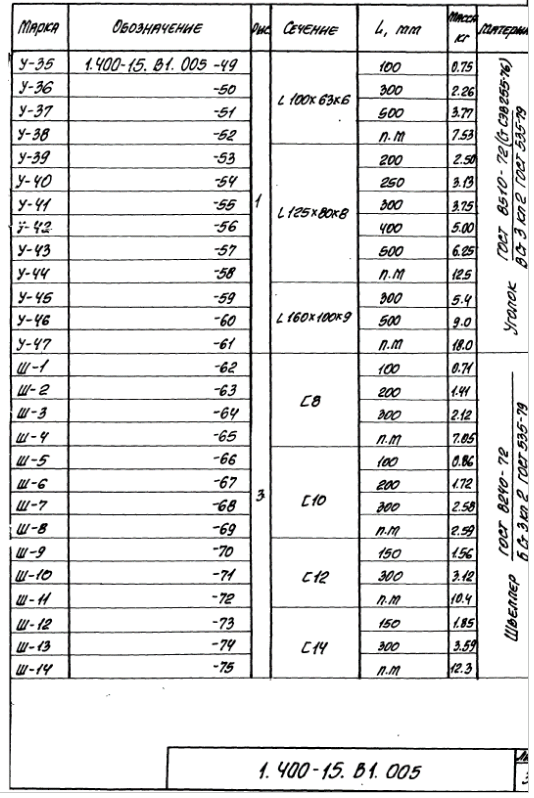 Марка Обозначение Рис Сечение L, мм Масса кг
У-35 1.400-15. В1. 005 -49 1 L 100×63×6 100 0.75 Уголок ГОСТ 8510-72 (Ст СЭВ 255-76) ВСт 3 кп 2 ГОСТ 535-79
У-36 -50 300 2.26
У-37 -51 500 3.77
У-38 -52 п.м 7.53
У-39 -53 L 125×80×8 200 2.50
У-40 -54 250 3.13
У-41 -55 300 3.75
У-42 -56 400 5.00
У-43 -57 500 6.25
У-44 -58 п.м 12.5
У-45 -59 L 160×100×9 300 5.4
У-46 -60 500 9.0
У-47 -61 п.м 18.0
Ш-1 -62 3 [8 100 0.71 Швеллер ГОСТ 8240-72 Б Ст 3 кп 2 ГОСТ 535-79
Ш-2 -63 200 1.41
Ш-3 -64 300 2.12
Ш-4 -65 п.м 7.05
Ш-5 -66 [10 100 0.86
Ш-6 -67 200 1.72
Ш-7 -68 300 2.58
Ш-8 -69 п.м 2.59
Ш-9 -70 [12 150 1.56
Ш-10 -71 300 3.12
Ш-11 -72 п.м 10.4
Ш-12 -73 [14 150 1.85
Ш-13 -74 300 3.59
Ш-14 -75 п.м 12.3
1. 400-15. В1. 005